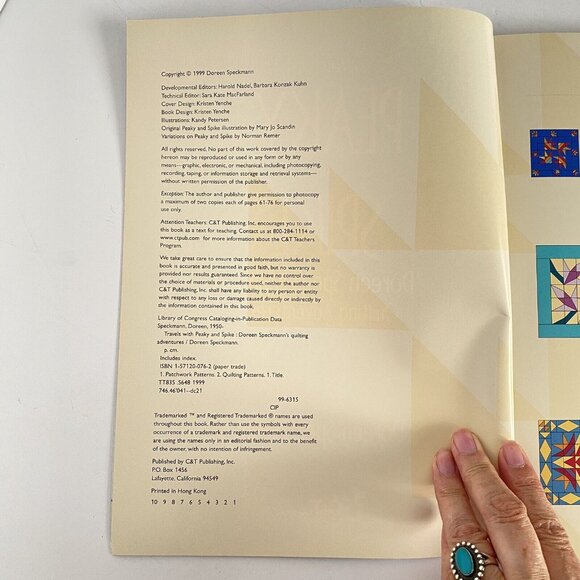 Copyright © 1999 Doreen Speckmann
Developmental Editors: Harold Nadel, Barbara Konzak Kuhn
Technical Editor: Sara Kate MacFarland
Cover Design: Kristen Yenche
Book Design: Kristen Yenche
Illustrations: Kandy Petersen
Original Peaky and Spike illustration by Mary Jo Scandin
Variations on Peaky and Spike by Norman Remer
All rights reserved. No part of this work covered by the copyright
hereon may be reproduced or used in any form or by any
means—graphic, electronic, or mechanical, including photocopying,
recording, taping, or information storage and retrieval systems—
without written permission of the publisher.
Exception: The author and publisher give permission to photocopy
a maximum of two copies each of pages 61-76 for personal
use only.
Attention Teachers: C&T Publishing, Inc. encourages you to use
this book as a text for teaching. Contact us at 800-284-1114 or
www.ctpub.com for more information about the C&T Teachers
Program.
We take great care to ensure that the information included in this
book is accurate and presented in good faith, but no warranty is
provided nor results guaranteed. Since we have no control over
the choice of materials or procedure used, neither the author nor
C&T Publishing, Inc. shall have any liability to any person or entity
with respect to any loss or damage caused directly or indirectly by
the information contained in this book.
Library of Congress Cataloging-in-Publication Data
Speckmann, Doreen, 1950-
Travels with Peaky and Spike : Doreen Speckmann's quilting
adventures / Doreen Speckmann.
p. cm.
Includes index.
ISBN 1-57120-076-2 (paper trade)
1. Patchwork Patterns. 2. Quilting Patterns. 1. Title.
TT835 .S648 1999
746.46'041--dc21
99-6315
CIP
Trademarked ™ and Registered Trademarked ® names are used
throughout this book. Rather than use the symbols with every
occurrence of a trademark and registered trademark name, we
are using the names only in an editorial fashion and to the benefit
of the owner, with no intention of infringement.
Published by C&T Publishing, Inc.
P.O. Box 1456
Lafayette, California 94549
Printed in Hong Kong
10 9 8 7 6 5 4 3 2 1